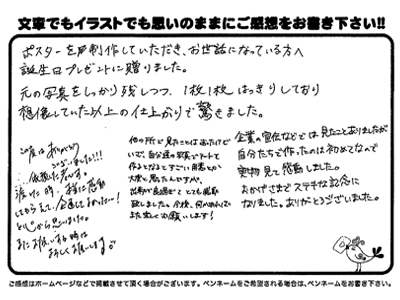 文章でもイラストでも思いのままにご感想をお書き下さい!!
ポスターを制作していただき、お世話になっている方へ
誕生日プレゼントに贈りました。
元の写真をしっかり残しつつ、1枚1枚はっきりしており
想像していた以上の仕上がりで驚きました。
この度はありがとう
ございました!!!
依頼した者です。
渡した時、一緒に感動
してもらえて、企画してよかった…!
と心から思いました。
またお願いする時は
よろしくお願いします
他の所で見たことはあったけど
いざ、自分達の写真でアートを
作るとなるとすごい用意とか
大変と思ったんですが、
とても感動
致しました。今後、何かあれば
また宜しくお願いします!
企業の宣伝などでは見たことありましたが
自分たちで作ったのは初めてなので
実物見て感動しました。
おかげさまでステキな記念に
なりました。ありがとうございました。
ご感想はホームページなどで掲載させて頂く場合がございます。ペンネームをご希望される場合は、ペンネームをお書き下さい。